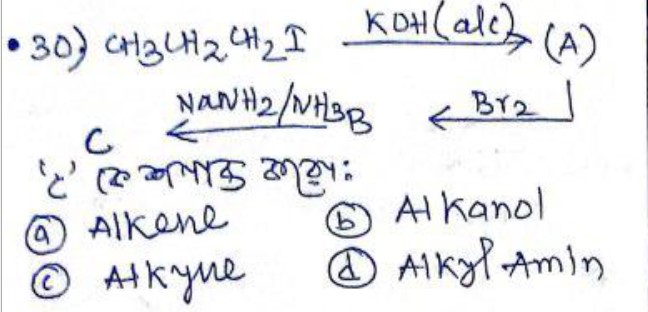 • 30) CH3CH2CH2I KOH(alc) (A)
C NaNH2/NH3 B Br2
'C' কে শনাক্ত করো:
(a) Alkene (b) Alkanol
(c) Alkyne (d) Alkyl Amin